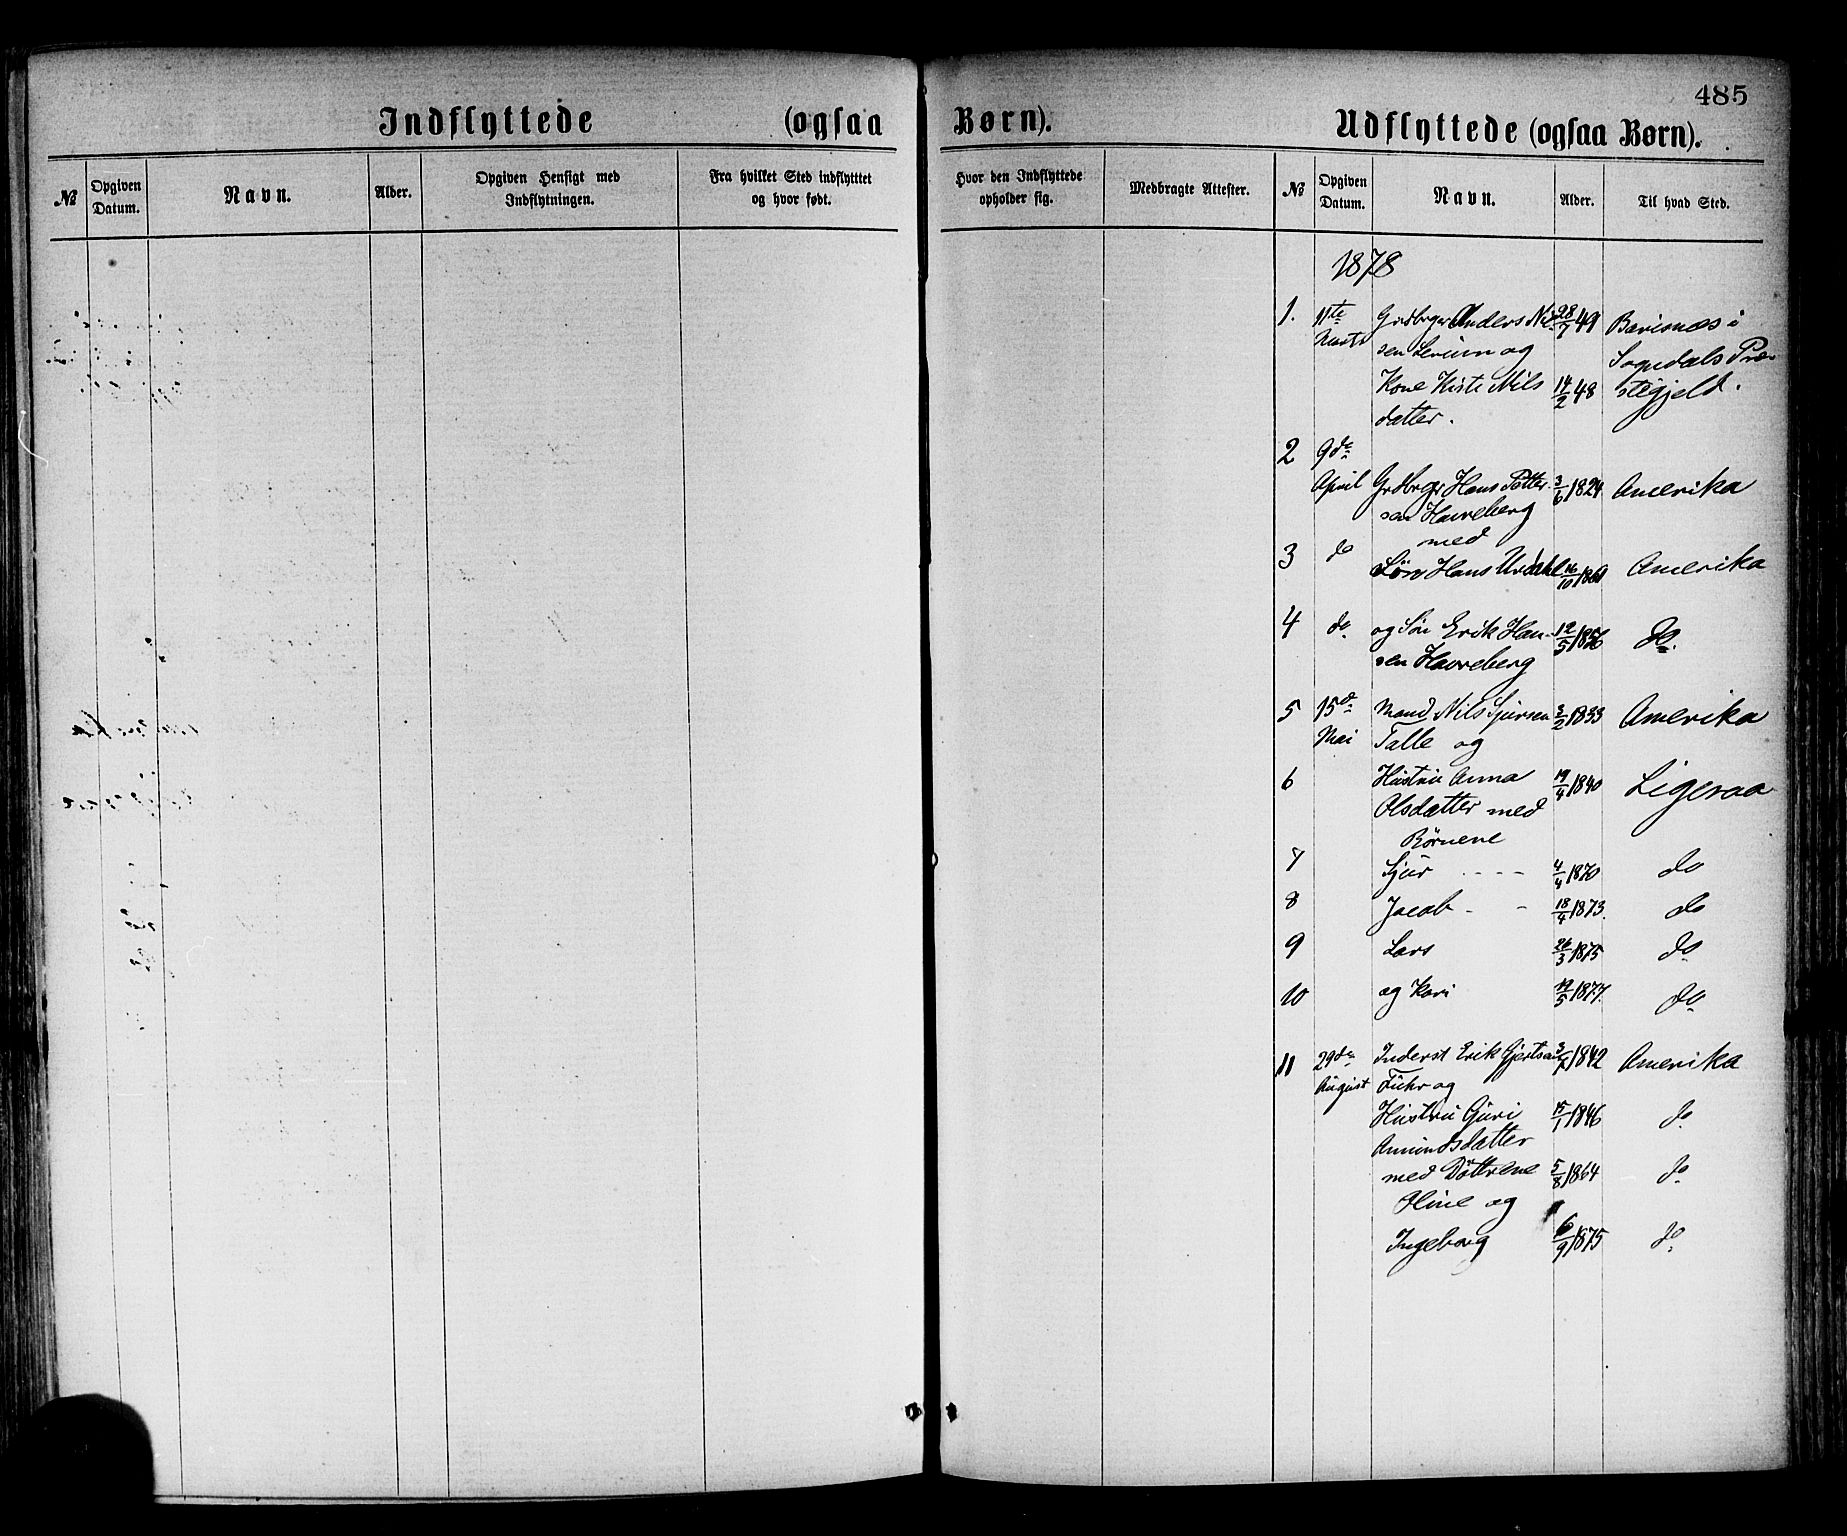 485
Indflyttede (ogsaa Børn).
Udflyttede (ogsaa Børn).
№
Opgiven Datum.
Navn.
Alder.
Opgiven Hensigt med Indflytningen.
Fra hvilket Sted indflyttet og hvor født.
Hvor den Indflyttede opholder sig.
Medbragte Attester.
№
Opgiven Datum.
Navn.
Alder.
Til hvad Sted.
1878
1. 11te Grdbrger Anders Nil 28/7 49
Marts sen Lerum og Sogndals Præ
Kone Kirsti Nils 14/2 48 stegjeld.
datter.
2 9de
April Grdbrgr Hans Petter 3/6 1824 Amerika
sen Havreberg
med
3 do Søn Hans Urdahl 16/10 Amerika
4 do og Søn Erik Han 12/5 do.
sen Havreberg
5 15de Mand Nils Sjursen 3/2 1833 Amerika
Mai Talle og
6 Hustru Anna 19/4 1840 Ligesaa
Olsdatter med
Børnene
7 Sjur - - - - 4/4 1870 do
8 Jacob - - 18/4 1873. do
9 Lars 26/3 1875 do
10 og Kari 19/5 1877. do
11 29de Inderst Erik Gjertsen 1842 Amerika
August Fuhr og
Hustru Guri 15/1 1846 do
Amundsdatter
med Døttrene 5/8 1864 do
Oline og
Ingeborg 6/9 1875 do